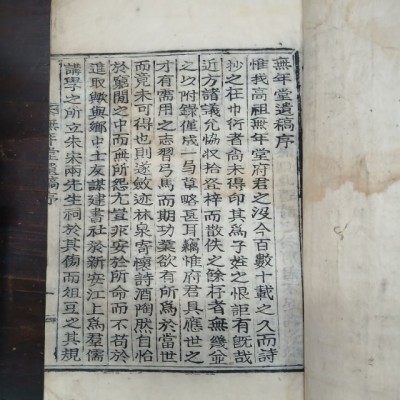 無年堂遺稿序
惟我高祖無年堂府君之沒今百數十載之久而詩
抄之在巾衍者尙未得印其爲子姓之恨詎有旣哉
近方諸議允恊收拾登梓而散佚之餘存者無幾並
之以附錄僅成一弓草略甚耳竊惟府君具應世之
才有需用之志習弓馬而期功業欲有所爲於當世
而竟未可得也則遂斂迹林泉寄懷詩酒陶然自怡
於窮閭之中而無所怨尤豈非安於所命而不苟於
進取歟與鄕中士友謀建書社於新安江上爲羣儒
講學之所立朱宋兩先生祠於其傍而俎豆之其規
無年堂遺稿序
一